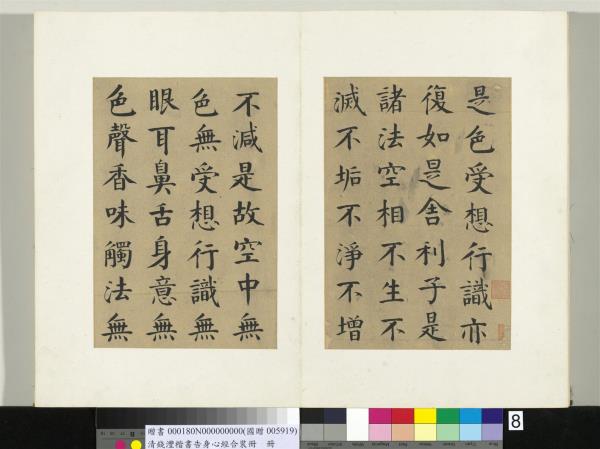 是色受想行識亦
復如是舍利子是
諸法空相不生不
滅不垢不淨不增
不減是故空中無
色無受想行識無
眼耳鼻舌身意無
色聲香味觸法無
贈書 000180N000000000(國贈 005919)
清錢灃楷書告身心經合裝冊 冊
8